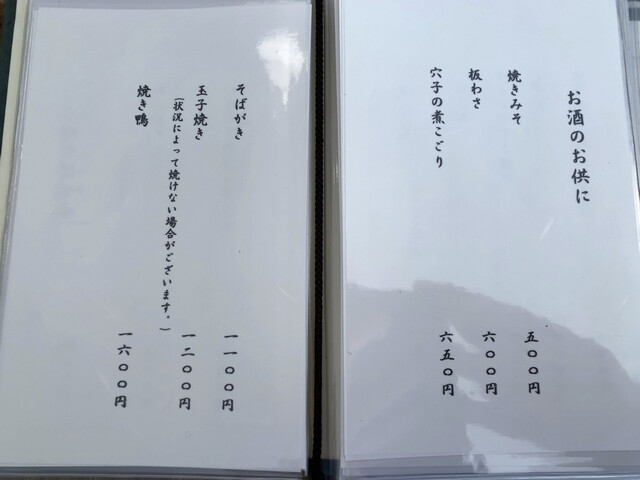 お酒のお供に
焼きみそ 五〇〇円
板わさ 六〇〇円
穴子の煮こごり 六五〇円
そばがき 一一〇〇円
玉子焼き 一二〇〇円
(状況によって焼けない場合がございます。)
焼き鴨 一六〇〇円